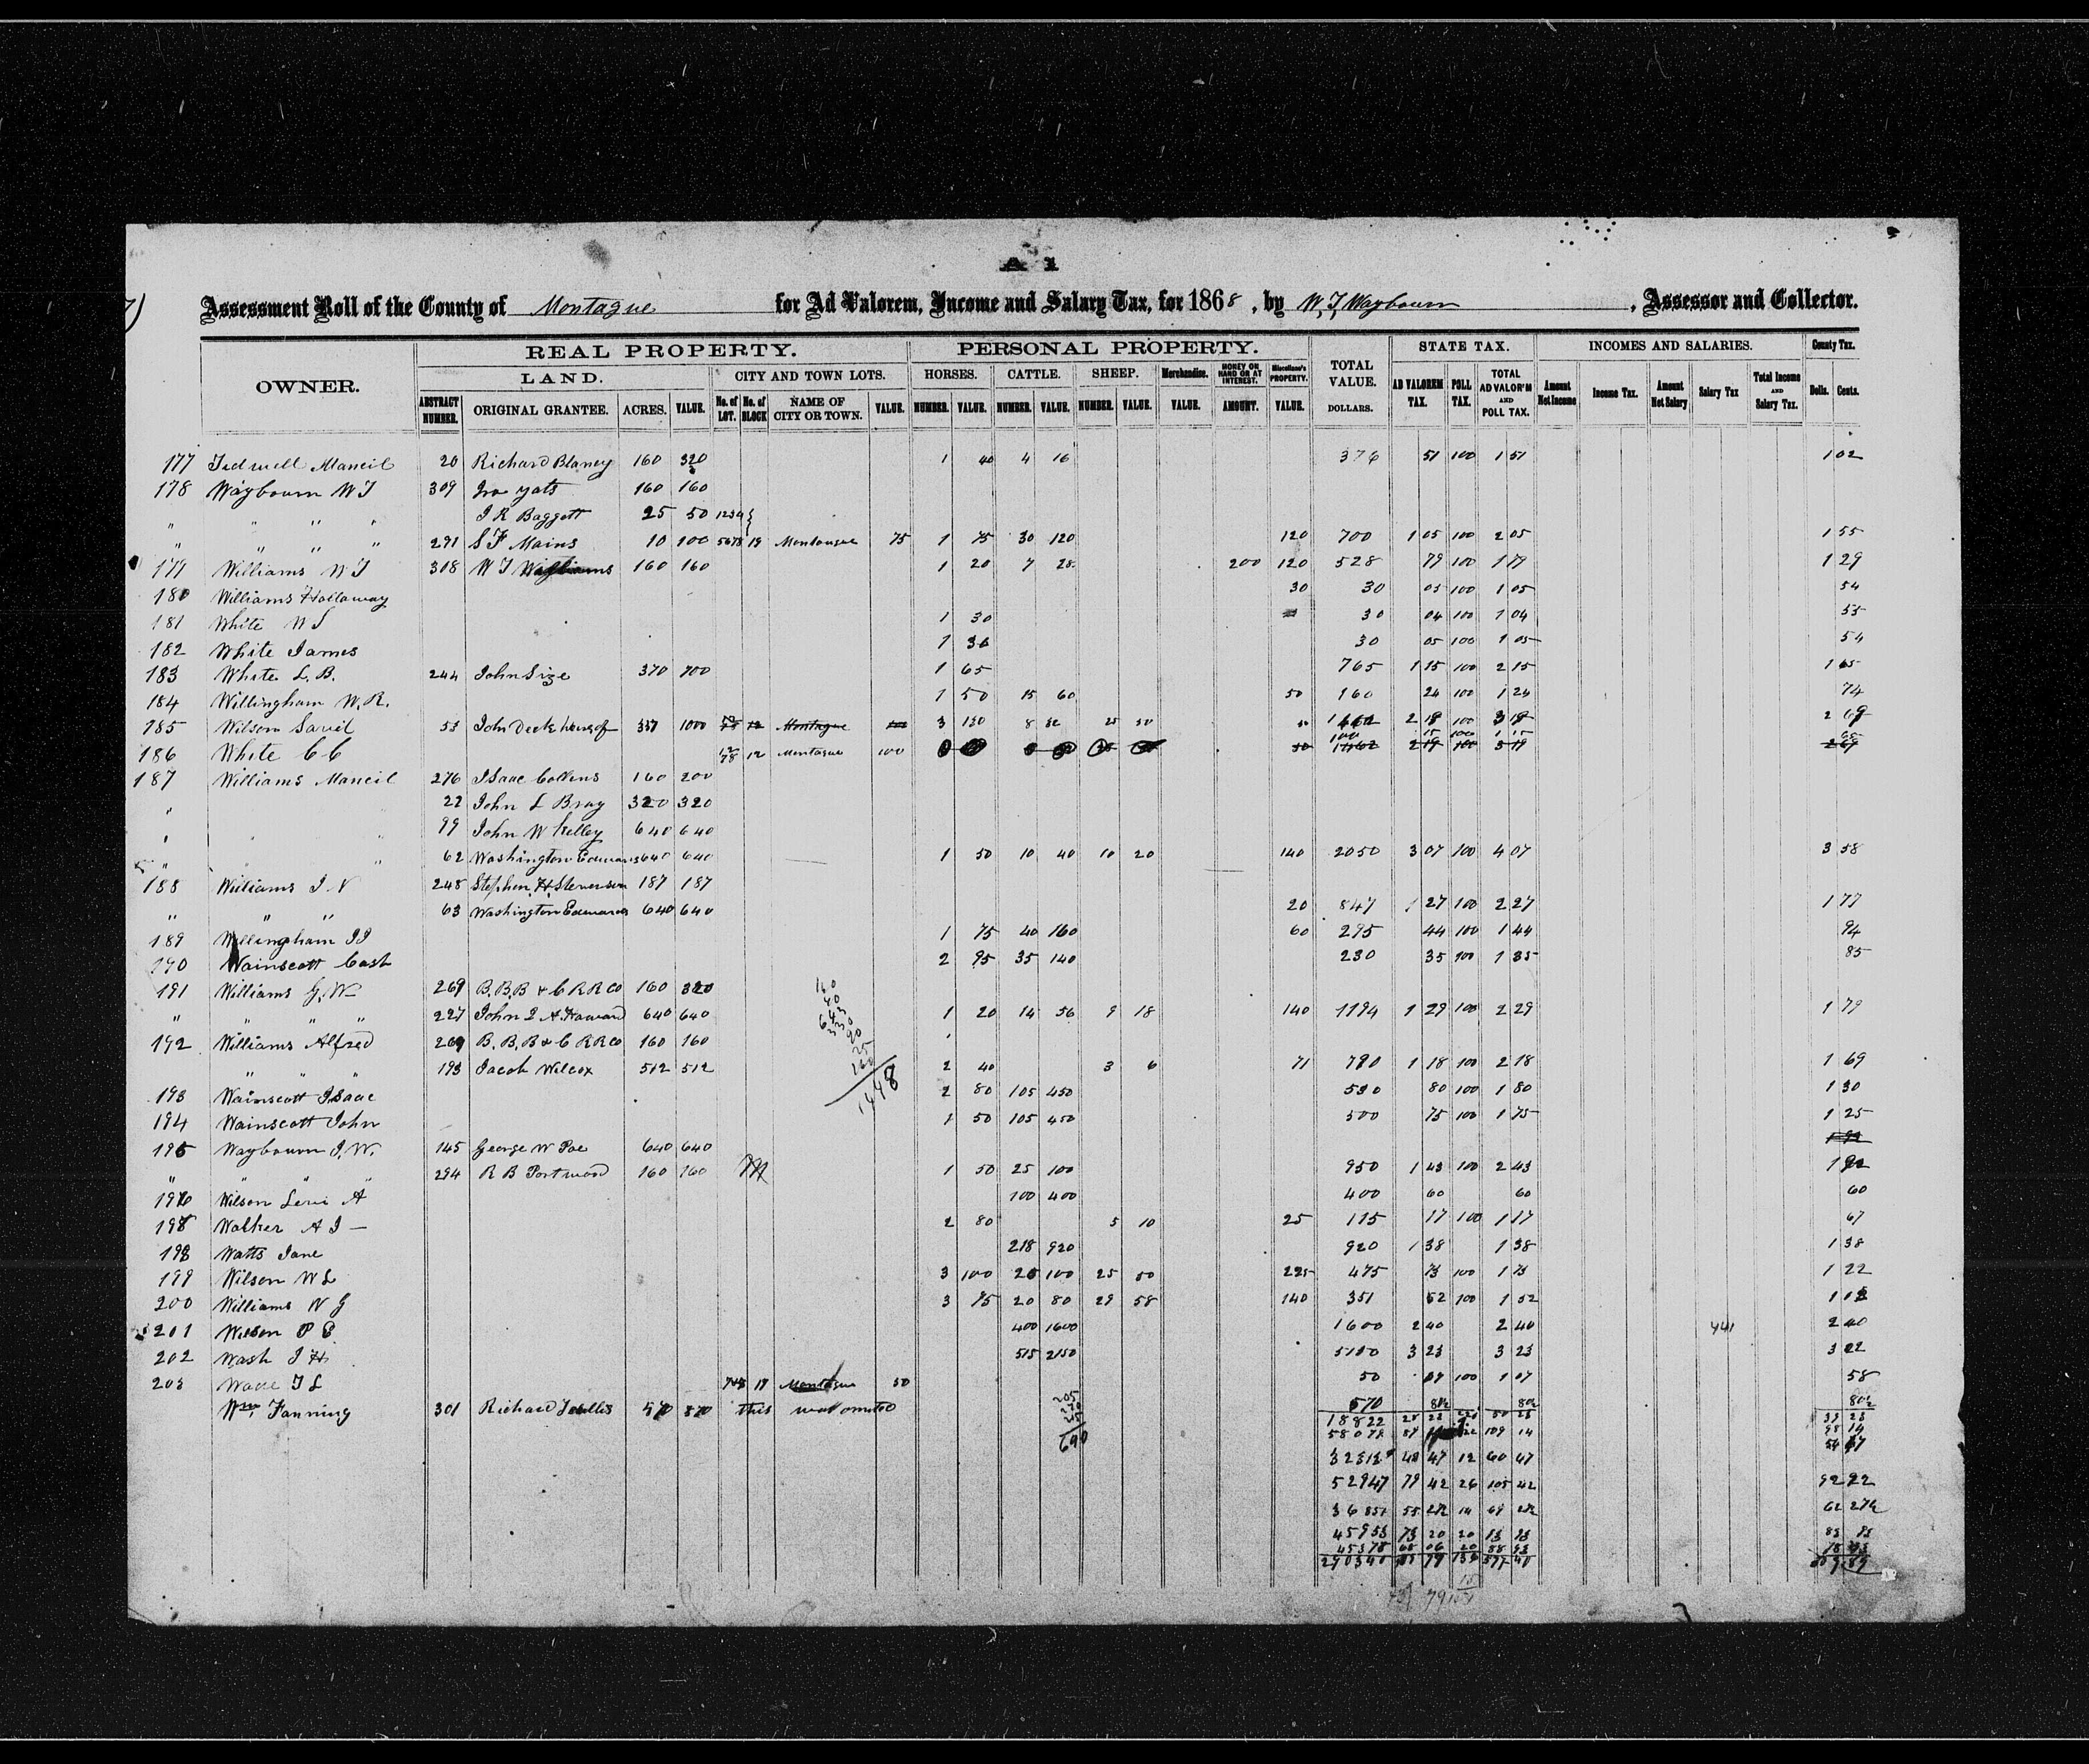 A 1
7)
Assessment Roll of the County of Montague for Ad Valorem, Income and Salary Tax, for 1868, by W. T. Waybourn, Assessor and Collector.
REAL PROPERTY. PERSONAL PROPERTY. STATE TAX. INCOMES AND SALARIES. County Tax.
OWNER. LAND. CITY AND TOWN LOTS. HORSES. CATTLE. SHEEP. Merchandise. MONEY ON HAND OR AT INTEREST. Miscellane's PROPERTY. TOTAL VALUE. DOLLARS. AD VALOREM TAX. POLL TAX. TOTAL AD VALOR'M AND POLL TAX. Amount Net Income Income Tax. Amount Net Salary Salary Tax Total Income AND Salary Tax. Dolls. Cents.
ABSTRACT NUMBER. ORIGINAL GRANTEE. ACRES. VALUE. No. of LOT. No. of BLOCK NAME OF CITY OR TOWN. VALUE. NUMBER. VALUE. NUMBER. VALUE. NUMBER. VALUE. VALUE. AMOUNT. VALUE.
177 Tedwell Mancil 20 Richard Blaney 160 320 1 40 4 16 376 51 100 1 51 1 02
178 Waybourn W T 309 Ira yats 160 160
" " " " J R Baggett 25 50 1234
" " " " 291 S F Mains 10 100 5678 19 Montague 75 1 75 30 120 120 700 1 05 100 2 05 1 55
179 Williams W T 308 W T Williams 160 160 1 20 7 28 200 120 528 79 100 1 79 1 29
180 Williams Hallaway 30 30 05 100 1 05 54
181 White W S 1 30 30 04 100 1 04 53
182 White James 1 30 30 05 100 1 05 54
183 White L. B. 244 John Size 370 700 1 65 765 1 15 100 2 15 1 65
184 Willingham W. R. 1 50 15 60 50 160 24 100 1 24 74
185 Wilson Savil 53 John Deck heirs of 337 1000 12 Montague 3 150 8 32 25 50 2 19 100 3 19 2 69
186 White C C 78 12 Montague 100 100 15 100 1 15
187 Williams Mancil 276 Isaac Collens 160 200
" 22 John L Bray 320 320
" " 99 John W Kelley 640 640
" " 62 Washington Edwards 640 640 1 50 10 40 10 20 140 2050 3 07 100 4 07 3 58
188 Williams I N 248 Stephen H. Stevenson 187 187
" " " 63 Washington Edwards 640 640 20 847 1 27 100 2 27 1 77
189 Willingham J J 1 75 40 160 60 295 44 100 1 44 94
190 Wainscott Cash 2 95 35 140 230 35 100 1 35 85
191 Williams G. W 269 B. B. B & C R R Co 160 320
" " " " 227 John L A. Howard 640 640 1 20 14 56 9 18 140 1194 1 29 100 2 29 1 79
192 Williams Alfred 269 B. B. B & C R R Co 160 160
" " " 193 Jacob Wilcox 512 512 2 40 3 6 71 790 1 18 100 2 18 1 69
1448
193 Wainscott Isaac 2 80 105 450 530 80 100 1 80 1 30
194 Wainscott John 1 50 105 450 500 75 100 1 75 1 25
195 Waybourn J. W. 145 George W Poe 640 640
" " " 294 R B Portwood 160 160 1 50 25 100 950 1 43 100 2 43 1 92
196 Wilson Levi A 100 400 400 60 60 60
198 Walker A J 2 80 5 10 25 115 17 100 1 17 67
198 Watts Jane 218 920 920 1 38 1 38 1 38
199 Wilson W L 3 100 25 100 25 50 225 475 73 100 1 73 1 22
200 Williams N G 3 75 20 80 29 58 140 351 52 100 1 52 1 02
201 Wilson P E 400 1600 1600 2 40 2 40 441 2 40
202 Wash J H 515 2150 3 23 3 23 3 22
203 Wade T L 19 Montague 50 50 07 100 1 07 58
Wm Fanning 301 Richard 570 this was omitted 570
690
18822
58078 109 14
32312 48 47 12 60 47
52947 79 42 26 105 42 92 22
36851 55
45953 73 20 20
45378 68 06 20 88
290340